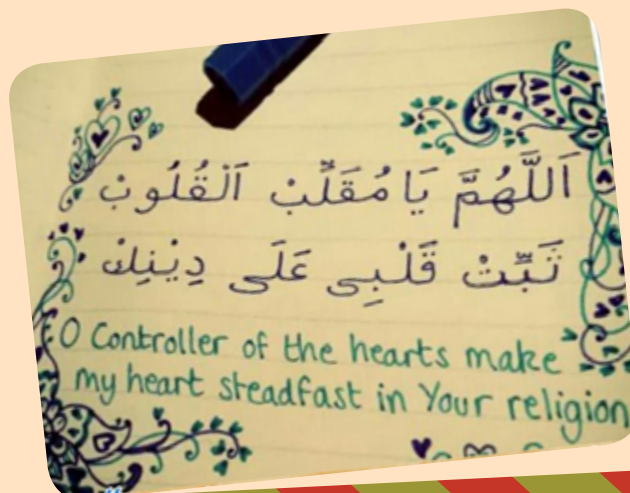 اَللَّهُمَّ يَا مُقَلِّبْ اَلْقُلُوبْ
ثَبِّتْ قَلْبِى عَلَى دِيْنِكْ
O Controller of the hearts make
my heart steadfast in Your religion